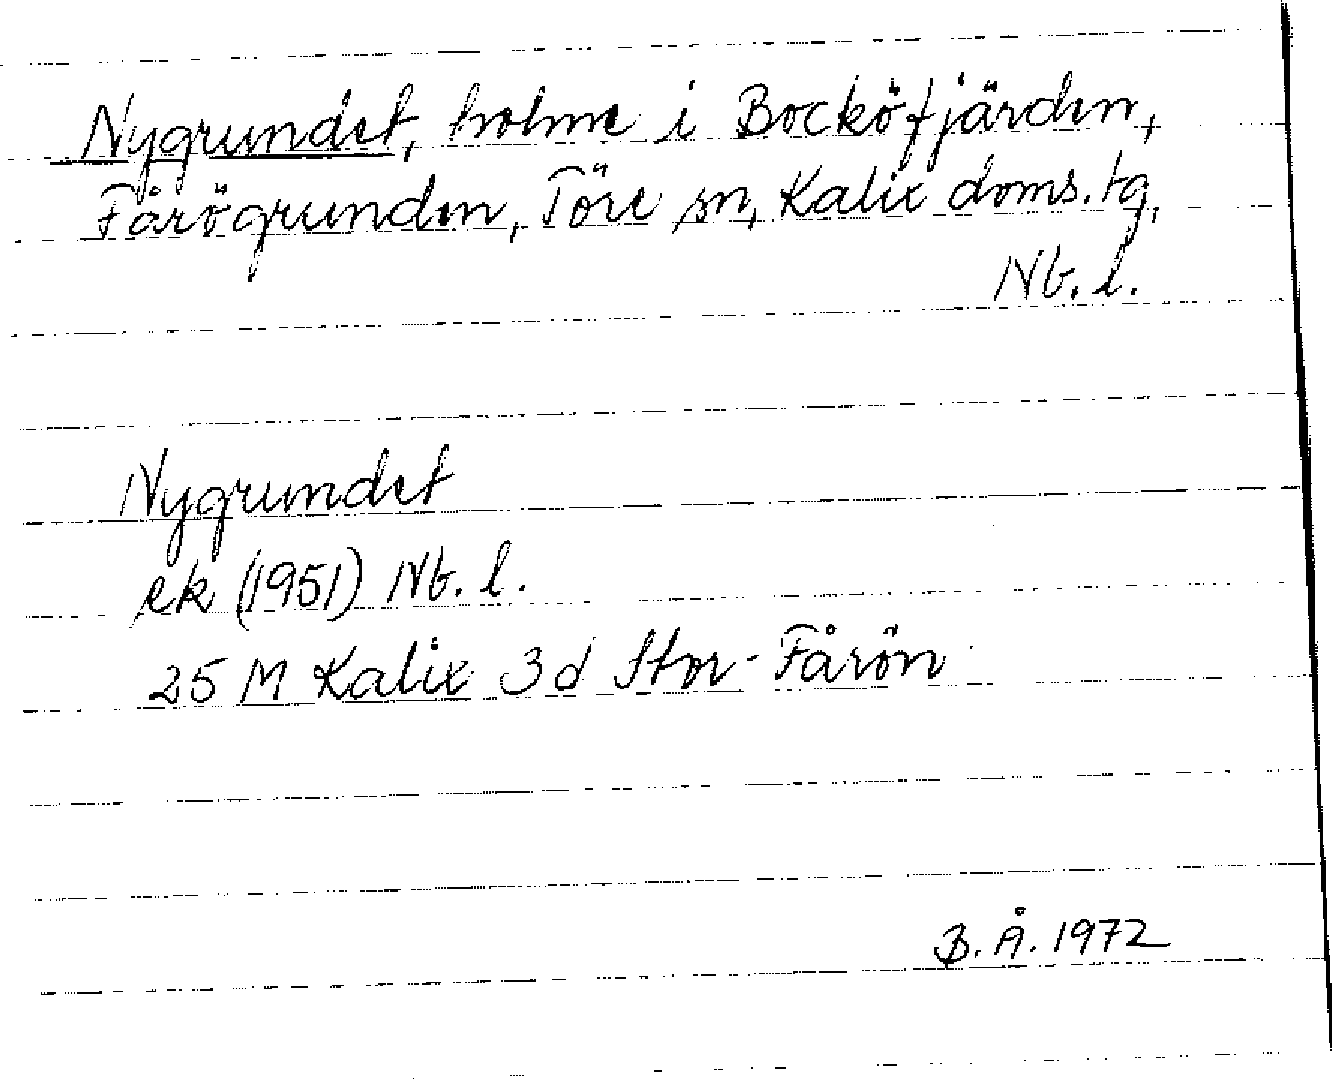 Nygrundet, holme i Bocköfjärden,
Fårögrunden, Töre sn, Kalix doms.tg,
Nb. l.
Nygrundet
ek (1951) Nb. l.
25 M Kalix 3d Stor-Fårön
B. Å. 1972